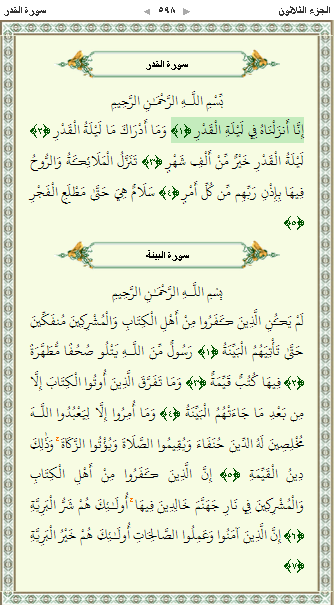 الجزء الثلاثون ٥٩٨ سورة القدر
سورة القدر
بِسْمِ اللَّـهِ الرَّحْمَـٰنِ الرَّحِيمِ
إِنَّا أَنزَلْنَاهُ فِي لَيْلَةِ الْقَدْرِ ﴿١﴾ وَمَا أَدْرَاكَ مَا لَيْلَةُ الْقَدْرِ ﴿٢﴾
لَيْلَةُ الْقَدْرِ خَيْرٌ مِّنْ أَلْفِ شَهْرٍ ﴿٣﴾ تَنَزَّلُ الْمَلَائِكَةُ وَالرُّوحُ
فِيهَا بِإِذْنِ رَبِّهِم مِّن كُلِّ أَمْرٍ ﴿٤﴾ سَلَامٌ هِيَ حَتَّىٰ مَطْلَعِ الْفَجْرِ
﴿٥﴾
سورة البينة
بِسْمِ اللَّـهِ الرَّحْمَـٰنِ الرَّحِيمِ
لَمْ يَكُنِ الَّذِينَ كَفَرُوا مِنْ أَهْلِ الْكِتَابِ وَالْمُشْرِكِينَ مُنفَكِّينَ
حَتَّىٰ تَأْتِيَهُمُ الْبَيِّنَةُ ﴿١﴾ رَسُولٌ مِّنَ اللَّـهِ يَتْلُو صُحُفًا مُّطَهَّرَةً
﴿٢﴾ فِيهَا كُتُبٌ قَيِّمَةٌ ﴿٣﴾ وَمَا تَفَرَّقَ الَّذِينَ أُوتُوا الْكِتَابَ إِلَّا
مِن بَعْدِ مَا جَاءَتْهُمُ الْبَيِّنَةُ ﴿٤﴾ وَمَا أُمِرُوا إِلَّا لِيَعْبُدُوا اللَّـهَ
مُخْلِصِينَ لَهُ الدِّينَ حُنَفَاءَ وَيُقِيمُوا الصَّلَاةَ وَيُؤْتُوا الزَّكَاةَ ۚ وَذَٰلِكَ
دِينُ الْقَيِّمَةِ ﴿٥﴾ إِنَّ الَّذِينَ كَفَرُوا مِنْ أَهْلِ الْكِتَابِ
وَالْمُشْرِكِينَ فِي نَارِ جَهَنَّمَ خَالِدِينَ فِيهَا ۚ أُولَـٰئِكَ هُمْ شَرُّ الْبَرِيَّةِ
﴿٦﴾ إِنَّ الَّذِينَ آمَنُوا وَعَمِلُوا الصَّالِحَاتِ أُولَـٰئِكَ هُمْ خَيْرُ الْبَرِيَّةِ
﴿٧﴾